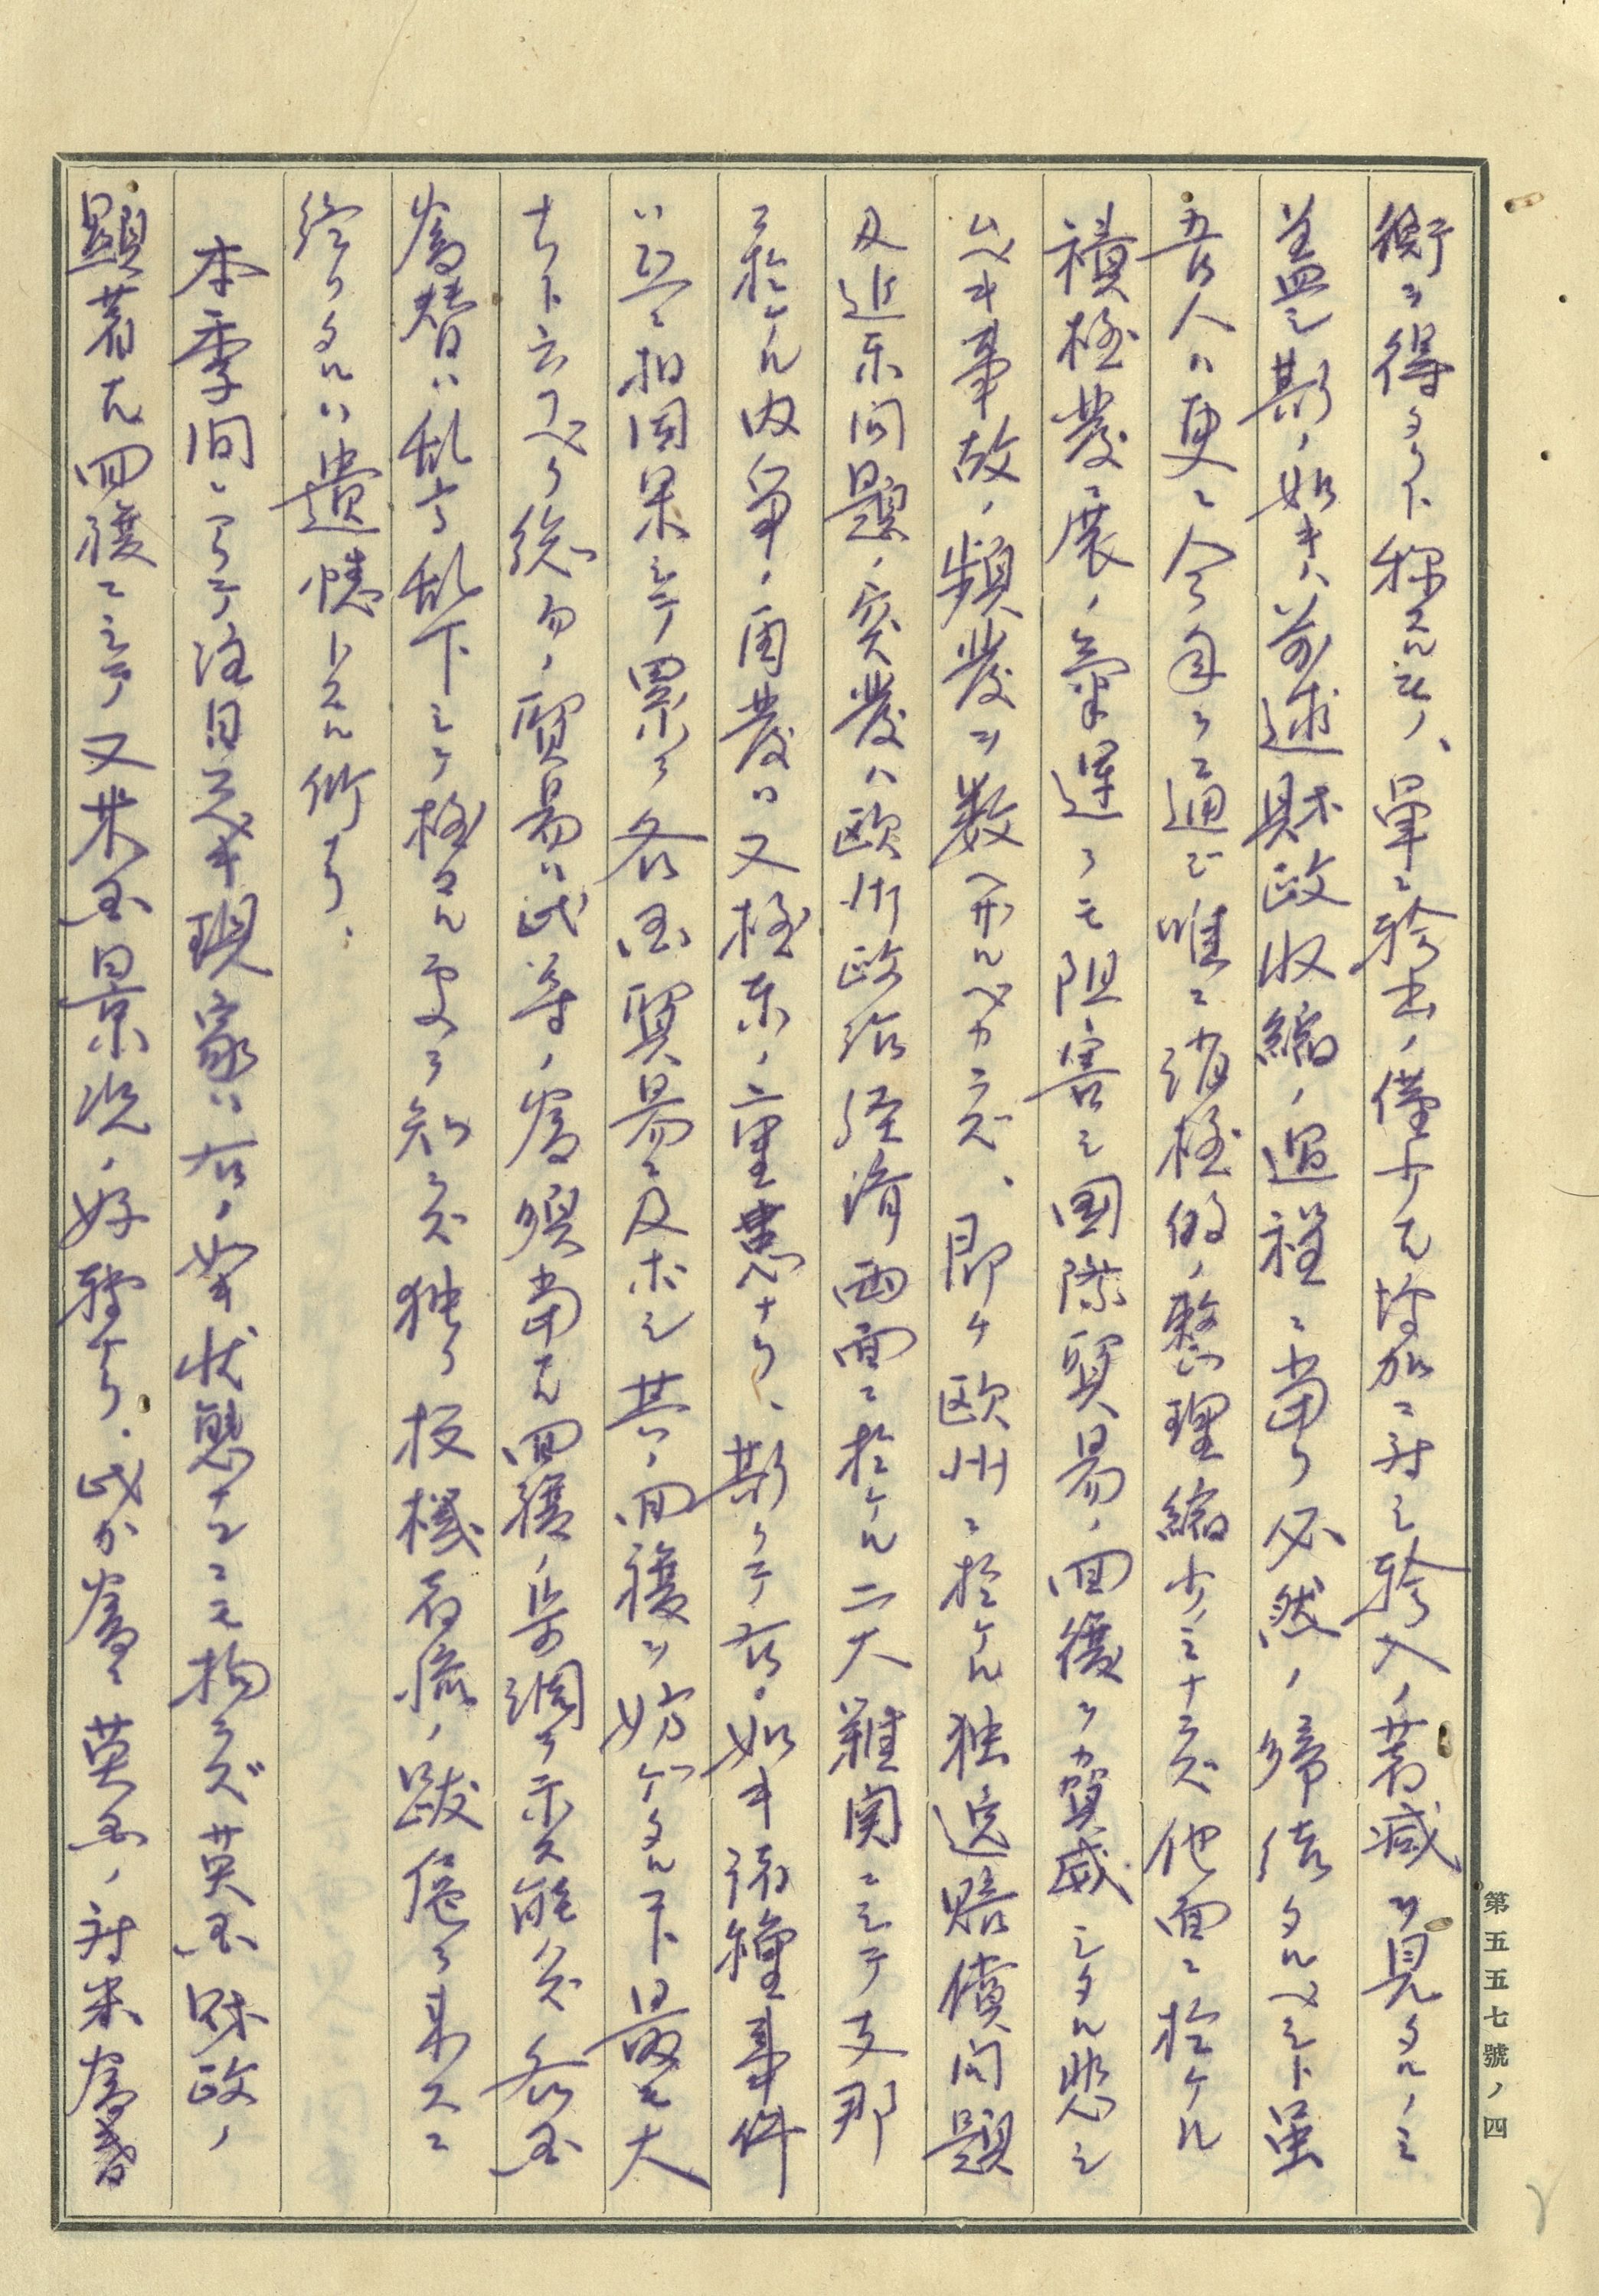 衡ヲ得タリト称スルモノ、単ニ輸出ノ僅少ナル増加ニ対シ輸入ノ著減ヲ見タルノミ
蓋シ斯ノ如キハ前述財政収縮ノ過程ニ当リ必然ノ帰結タルベシト虽
吾人ハ更ニ今年ヲ通ジ唯ニ消極的ノ整理縮少ノミナラズ他面ニ於ケル
積極発展ノ気運ヲモ阻害シ国際貿易ノ回復ヲ脅威シタル悲シ
ムベキ事故ノ頻発ヲ数ヘザルベカラズ、即チ欧州ニ於ケル独逸賠償問題
及近東問題ノ突発ハ欧州政治経済両面ニ於ケル二大難関ニシテ支那
ニ於ケル内争ノ再発ハ又極東ノ一重患ナリ、斯クテ右ノ如キ諸種事件
ハ互ニ相因果シテ累ヲ各国貿易ニ及ホシ其ノ回復ヲ妨ケタルコト最モ大
ナリト云フベク総ヘテノ貿易ハ此等ノ為順当ナル回復ノ歩調ヲ示ス能ハズ各国
為替ハ乱高乱下シテ極マル処ヲ知ラズ独リ投機者流ノ跋扈ヲ来スニ
終リタルハ遺憾トスル所ナリ、
本季間ニ了テ注目スベキ現象ハ右ノ如キ状態ナルニモ拘ラズ英国財政ノ
顕著ナル回復ニシテ又米国景況ノ好転ナリ、此カ為メ英国ノ対米為替
第五五七號ノ四